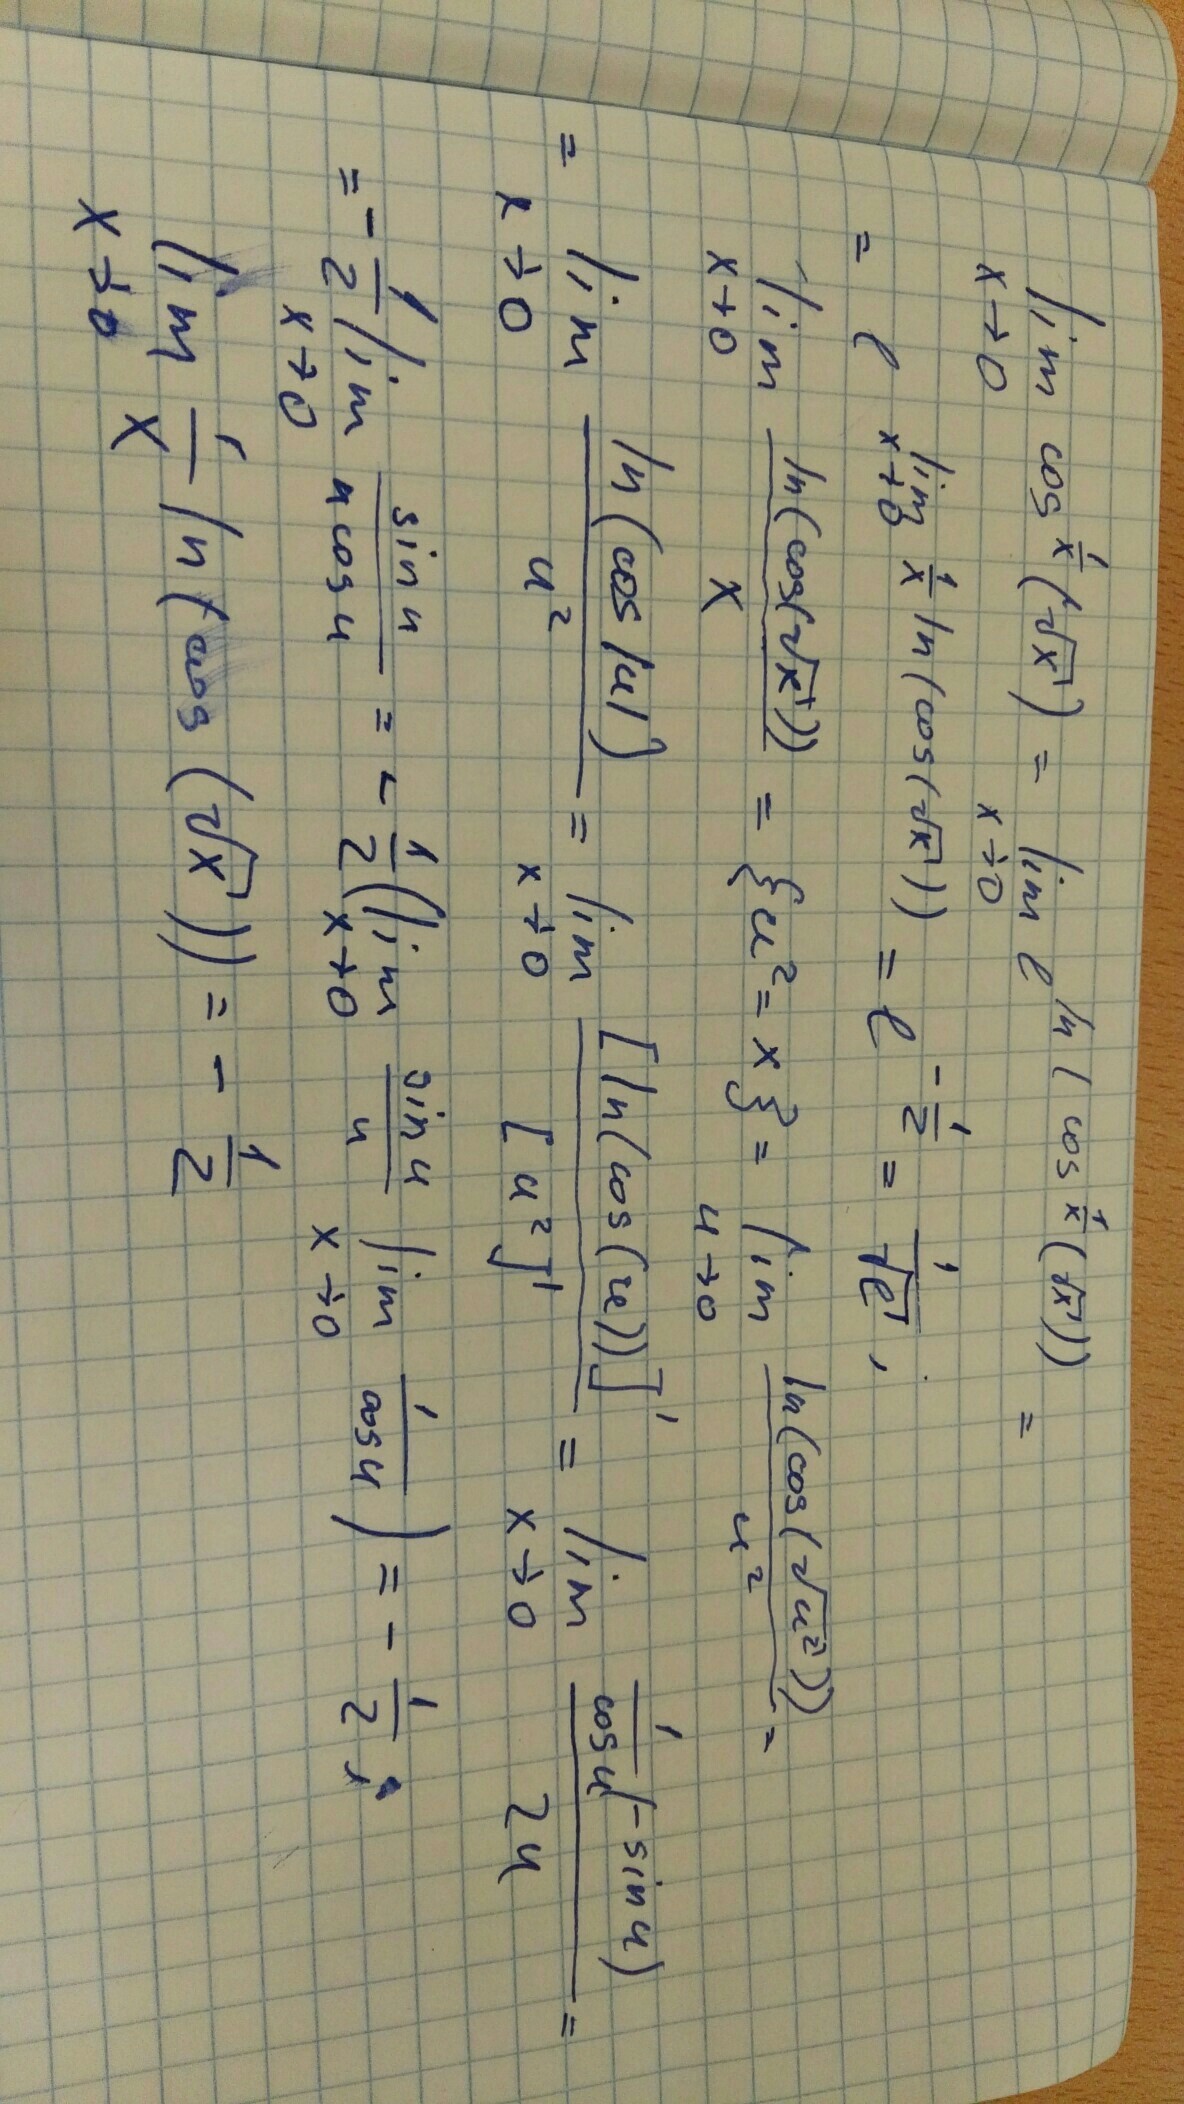 lim_{x→0} cos^{1/x}(√x) = lim_{x→0} e^{ln(cos^{1/x}(√x))} =
= e^{lim_{x→0} 1/x ln(cos(√x))} = e^{-1/2} = 1/√e,
lim_{x→0} ln(cos(√x))/x = {u² = x} = lim_{u→0} ln(cos(√u²))/u² =
= lim_{x→0} ln(cos|u|)/u² = lim_{x→0} [ln(cos(u))]'/[u²]' = lim_{x→0} (1/cos u (-sin u))/2u =
= -1/2 lim_{x→0} sin u/(u cos u) = -1/2 (lim_{x→0} sin u/u lim_{x→0} 1/cos u) = -1/2;
lim_{x→0} 1/x ln(cos(√x)) = -1/2